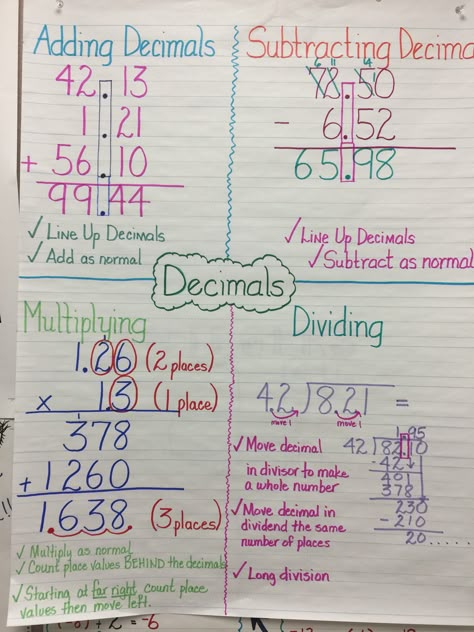 Adding Decimals
42.13
1.21
+ 56.10
99.44
✓ Line Up Decimals
✓ Add as normal
Subtracting Decima
6 11 4
78.50
- 6.52
65.98
✓ Line Up Decimals
✓ Subtract as normal
Decimals
Multiplying
1
1.26 (2 places)
x 1.3 (1 place)
1
378
+ 1260
1.638 (3 places)
✓ Multiply as normal
✓ Count place values BEHIND the decimals
✓ Starting at far right, count place
values then move left.
Dividing
4.2 ) 8.21 =
move 1 move 1
✓ Move decimal
in divisor to make
a whole number
✓ Move decimal in
dividend the same
number of places
✓ Long division
1.95
42 ) 82.10
- 42
401
378
230
- 210
20.....
= -6